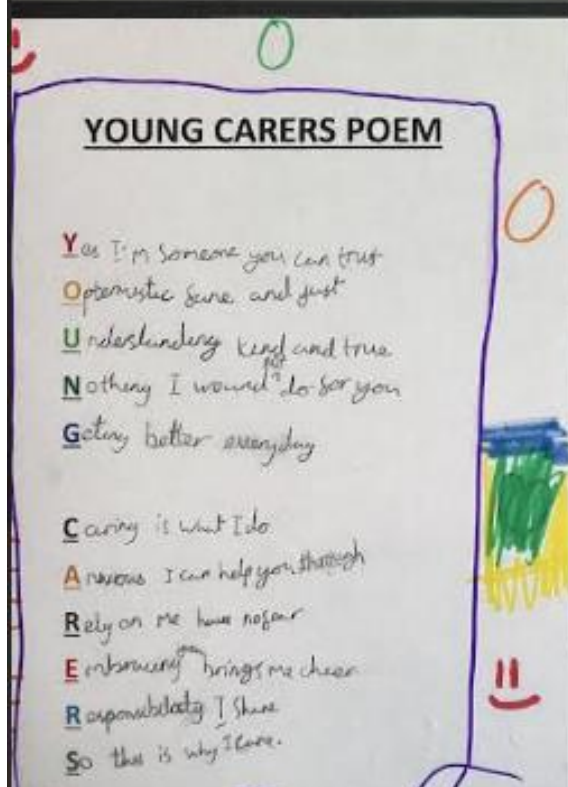 YOUNG CARERS POEM
Yes I'm someone you can trust
Optemistic sane and just
Understanding kend and true
Nothing I wound not do for you
Geting better everyday
Caring is what I do
Anxious I can help you through
Rely on me have no fear
Embracing you brings me cheer
Responsibility I share
So this is why I care.